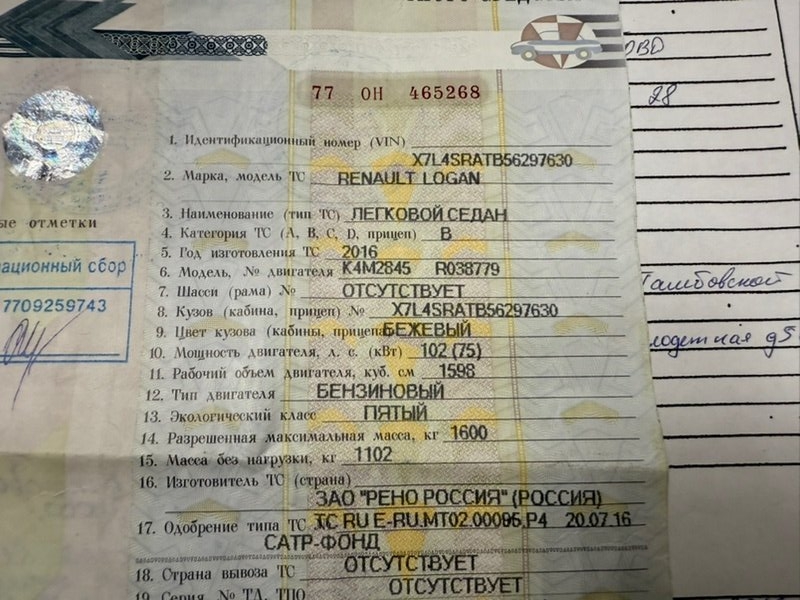 77 ОН 465268
ОВД
28
1. Идентификационный номер (VIN)
X7L4SRATB56297630
2. Марка, модель ТС RENAULT LOGAN
3. Наименование (тип ТС) ЛЕГКОВОЙ СЕДАН
ые отметки
4. Категория ТС (A, B, C, D, прицеп) B
5. Год изготовления ТС 2016
ационный сбор
6. Модель, № двигателя K4M2845 R038779
Тамбовской
7. Шасси (рама) № ОТСУТСТВУЕТ
7709259743
8. Кузов (кабина, прицеп) № X7L4SRATB56297630
9. Цвет кузова (кабины, прицепа БЕЖЕВЫЙ
10. Мощность двигателя, л. с. (кВт) 102 (75)
11. Рабочий объем двигателя, куб. см 1598
12. Тип двигателя БЕНЗИНОВЫЙ
13. Экологический класс ПЯТЫЙ
14. Разрешенная максимальная масса, кг 1600
15. Масса без нагрузки, кг 1102
16. Изготовитель ТС (страна)
ЗАО "РЕНО РОССИЯ" (РОССИЯ)
17. Одобрение типа ТС TC RU E-RU.MT02.00095.P4 20.07.16
САТР-ФОНД
18. Страна вывоза ТС ОТСУТСТВУЕТ
19. Серия, № ТД, ТПО ОТСУТСТВУЕТ